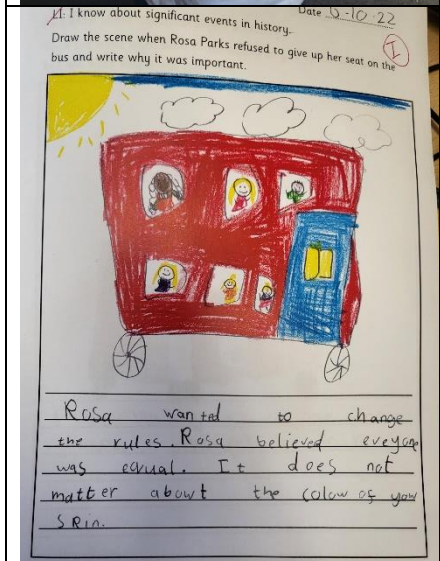 LI: I know about significant events in history.
Date 3-10-22
Draw the scene when Rosa Parks refused to give up her seat on the
I
bus and write why it was important.
Rosa wanted to change
the rules. Rosa believed eveyone
was equal. It does not
matter abowt the colow of yow
skin.